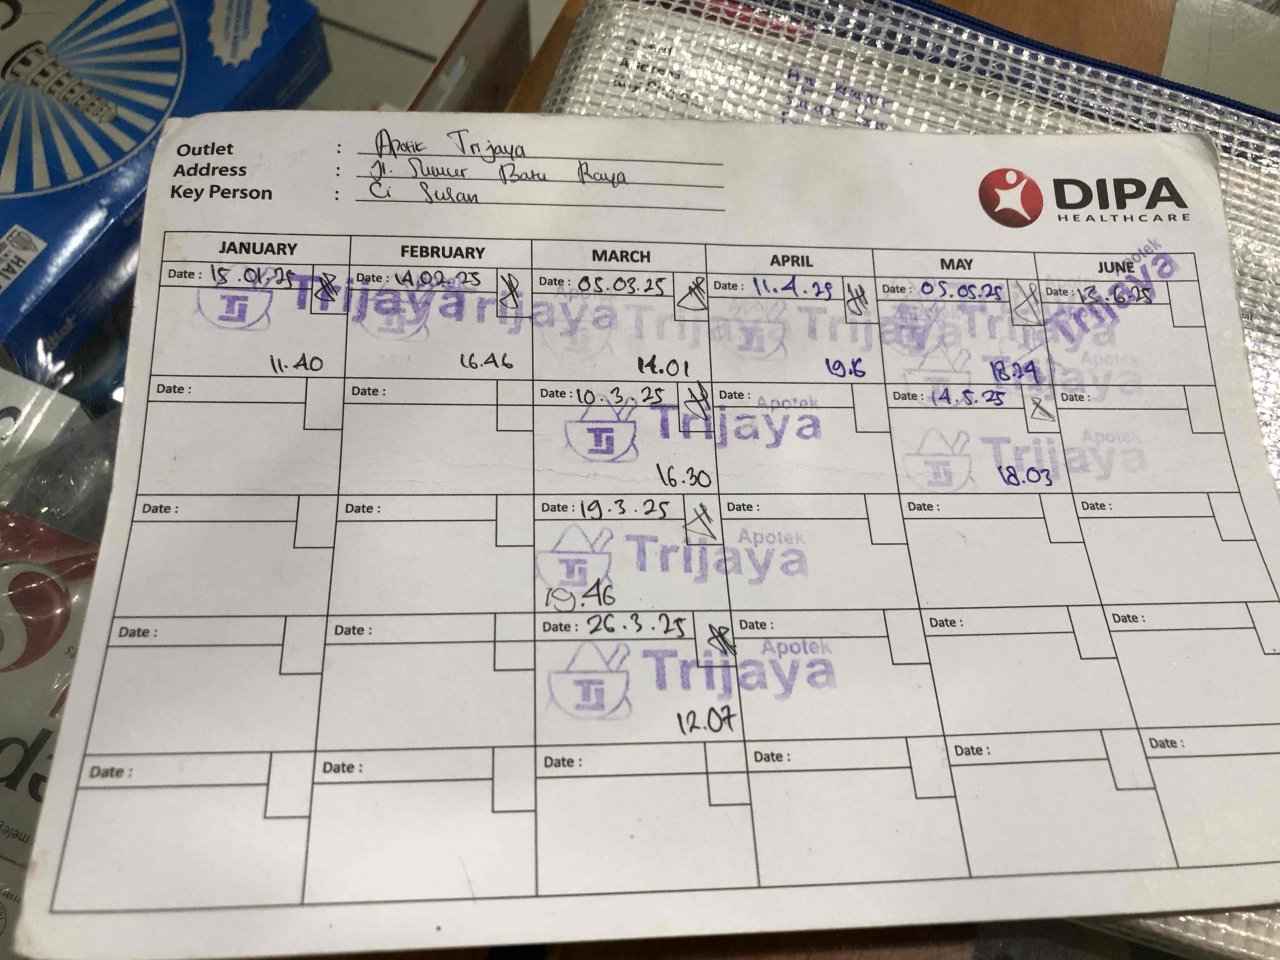 Outlet : Apotik Trijaya
Address : Jl. Sumur Batu Raya
Key Person : Ci Susan
DIPA
HEALTHCARE
JANUARY FEBRUARY MARCH APRIL MAY JUNE
Date : 15.01.25 Date : 14.02.25 Date : 05.03.25 Date : 11.4.25 Date : 05.05.25 Date : 13.6.25
Trijaya Trijaya Trijaya Trijaya Trijaya Apotek Trijaya
11.40 16.46 14.01 18.24
Date : Date : Date : 10.3.25 Date : Date : 14.5.25 Date :
TJ Apotek Trijaya TJ Apotek Trijaya
16.30 18.03
Date : Date : Date : 19.3.25 Date : Date : Date :
TJ Apotek Trijaya
19.46
Date : Date : Date : 26.3.25 Date : Date : Date :
TJ Apotek Trijaya
12.07
Date : Date : Date : Date : Date : Date :